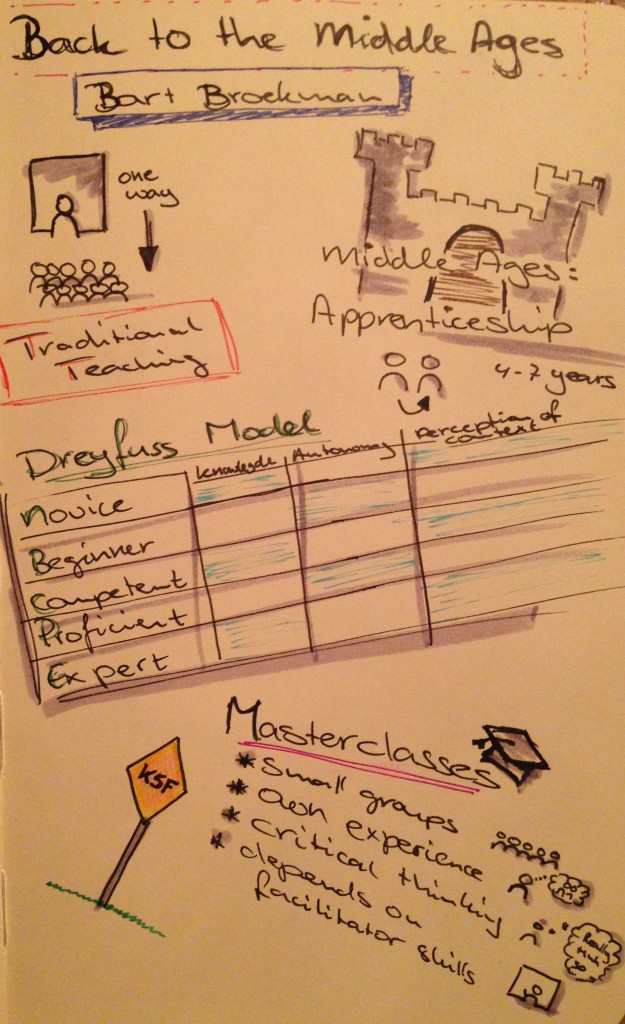 Back to the Middle Ages
Bart Broekman
one
way
Traditional
Teaching
Middle Ages:
Apprenticeship
4-7 years
Dreyfuss Model
knowlegde
Autonomy
perception of
context
Novice
Beginner
Competent
Proficient
Expert
KSF
Masterclasses
* small groups
* own experience
* critical thinking
* depends on
facilitator skills
Really